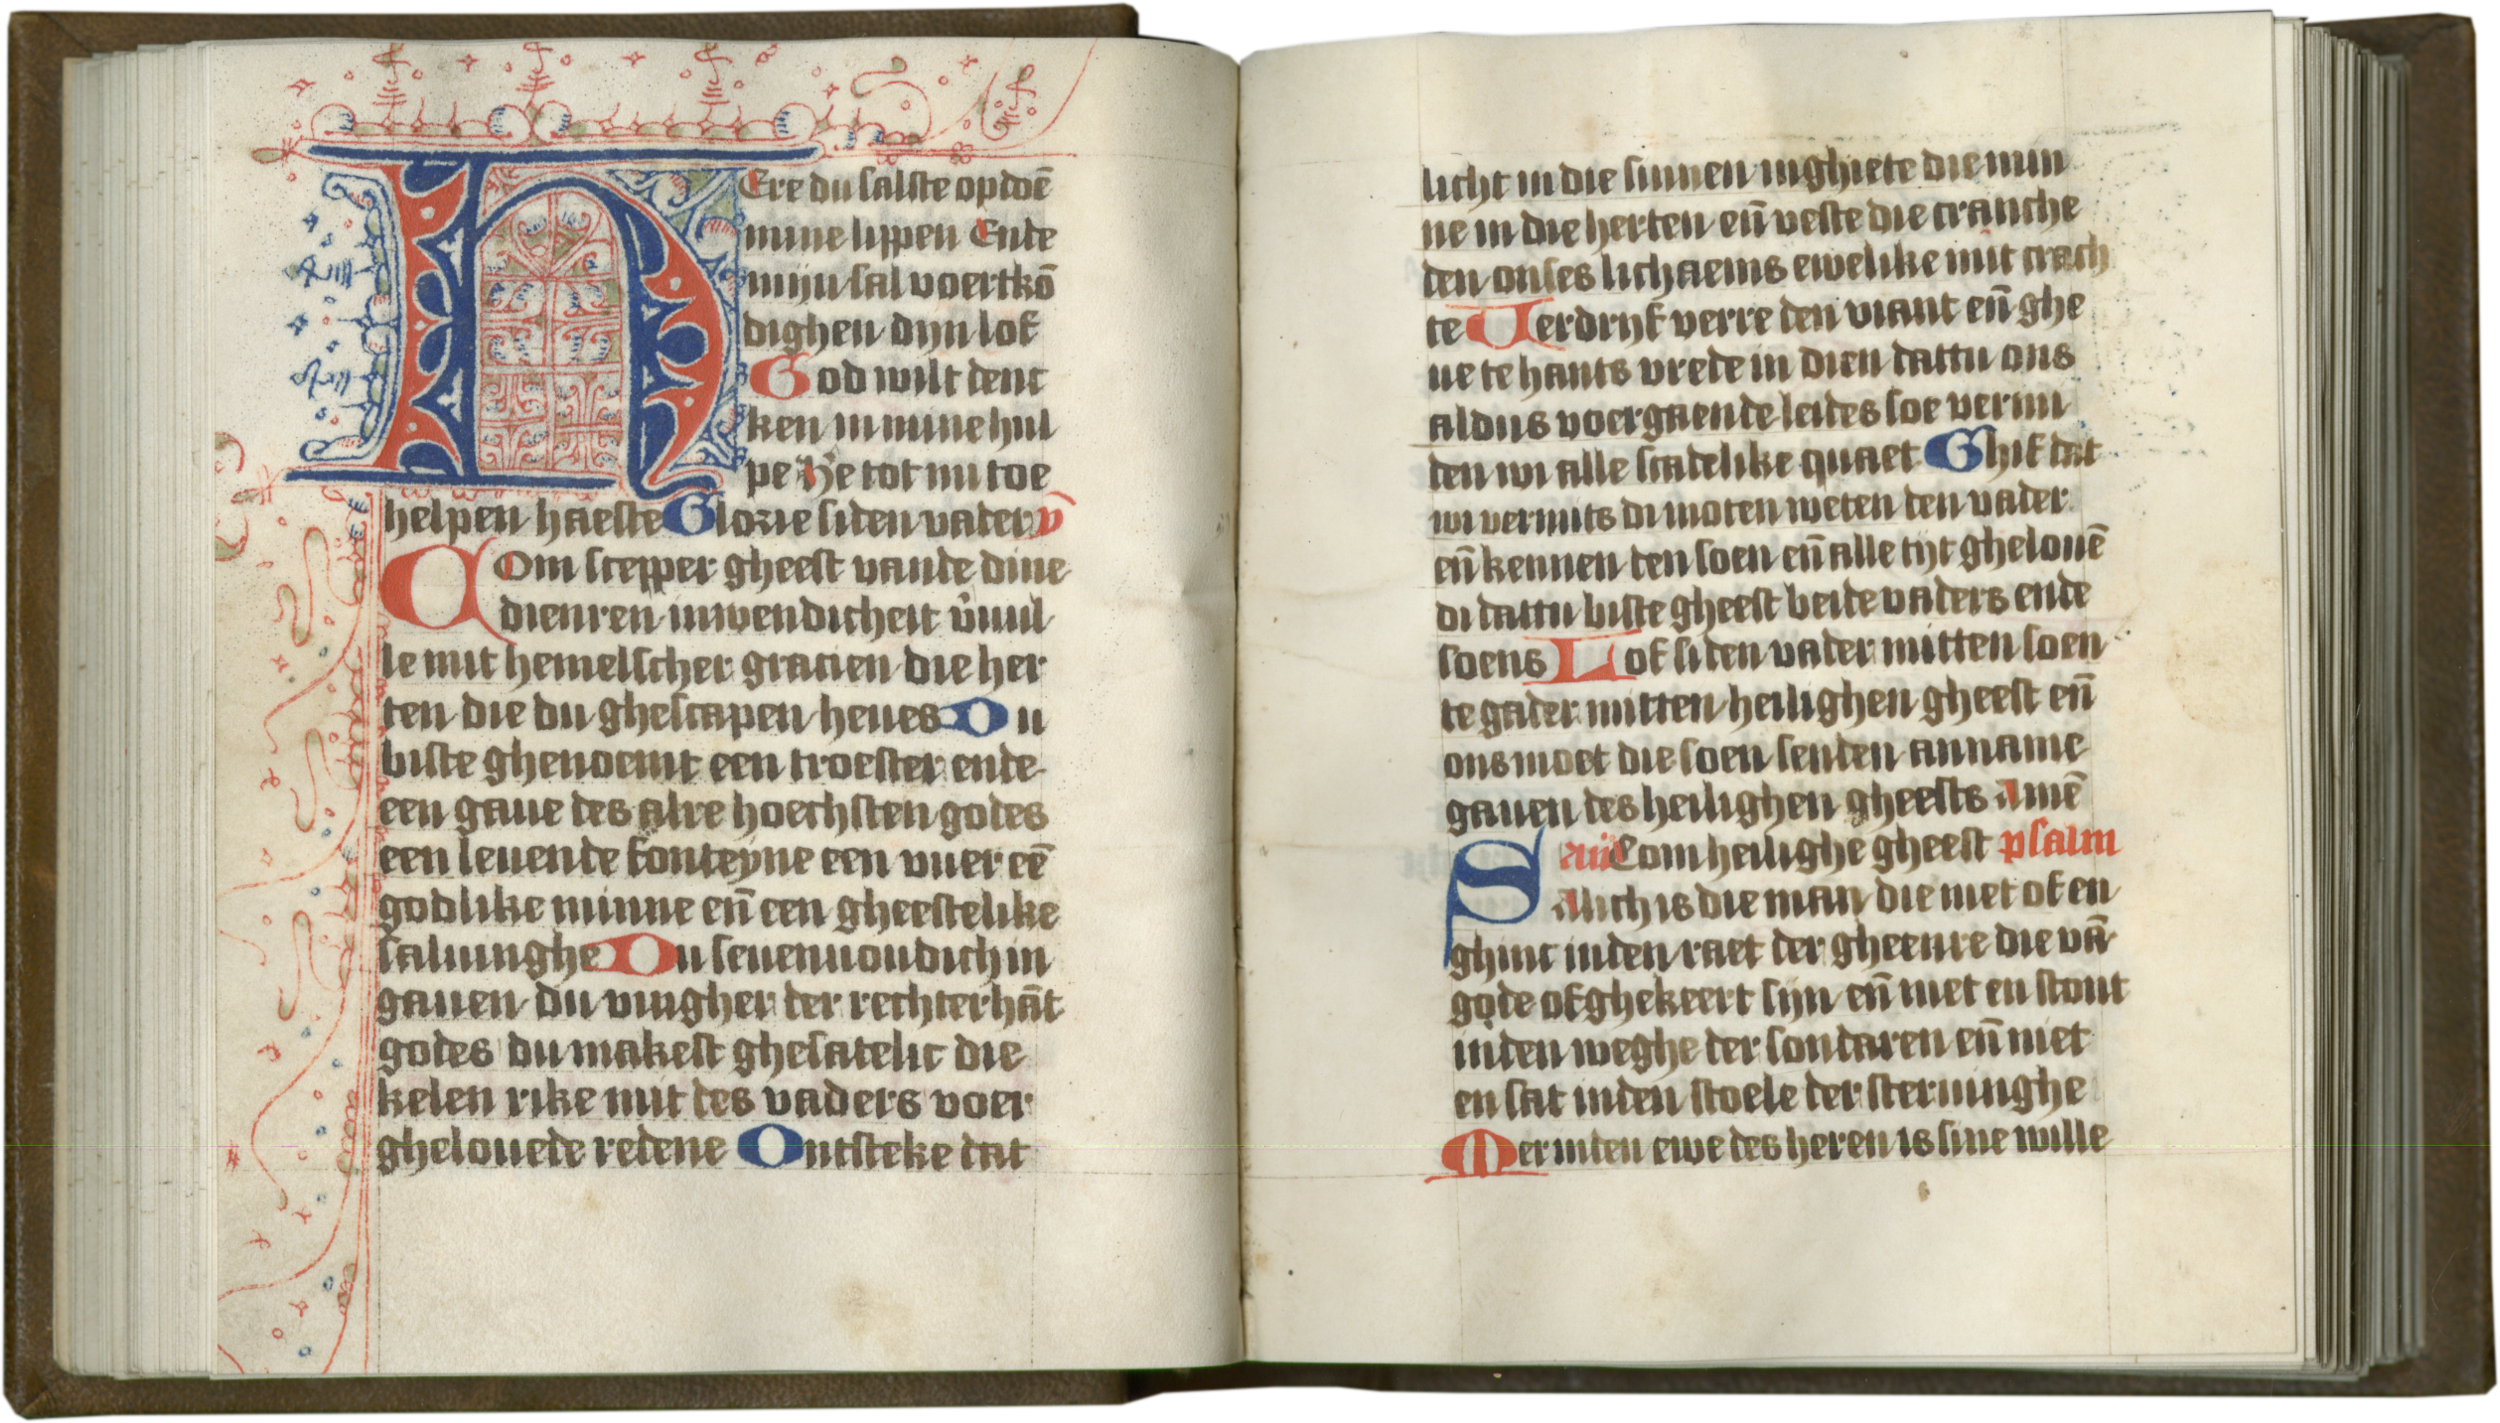 HEre du salste opdoē
mine lippen Ende
mijn sal voertkō
dighen dijn lof
God wilt denc
ken in mine hul
pe He tot mi toe
helpen haeste Glorie si den vader v̄
Com scepper gheest vande dine
dienren inwendicheit v̄uul
le mit hemelscher gracien die her
ten die du ghescapen heues Du
biste ghenoemt een troester ende
een gaue des alre hoechsten godes
een leuende fonteyne een vuer eē
godlike minne en̄ een gheestelike
saluinghe Du seuenuoudich in
gauen du vingher der rechter hāt
godes du makest ghesatelic die
kelen rike mit des vaders voer
ghelouede redene Ontsteke dat
licht in die sinnen inghiete die min
ne in die herten en̄ veste die cranche
den onses lichaems ewelike mit crach
te Verdrijf verre den viant en̄ ghe
ue te hants vrede in dien dattu ons
aldus voergaende leides soe vermi
den wi alle scadelike quaet Ghif dat
wi vermits di moten weten den vader
en̄ kennen den soen en̄ alle tijt ghelouē
di dattu biste gheest beide vaders ende
soens Lof si den vader mitten soen
te gader mitten heilighen gheest en̄
ons moet die soen senden anname
gauen des heilighen gheests Amē
Com heilighe gheest psalm
SAlich is die man die niet of en
ghinc inden raet der gheenre die vā
gode of ghekeert sijn en̄ niet en stont
inden weghe der sondaren en̄ niet
en sat inden stoele der steruinghe
Mer inden ewe des heren is sine wille